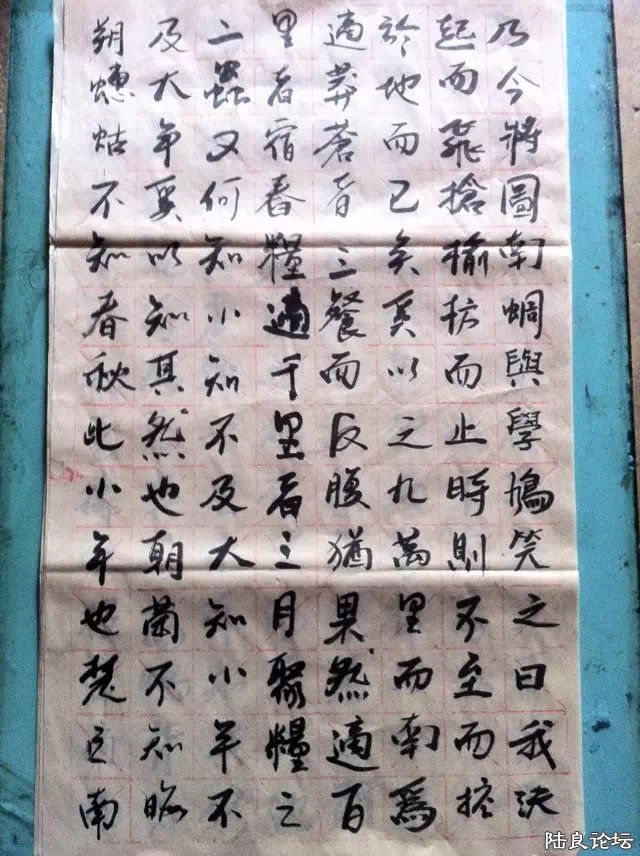 乃今將圖南蜩與學鳩笑之曰我決
起而飛搶榆枋而止時則不至而控
於地而已矣奚以之九萬里而南爲
適莽蒼者三餐而反腹猶果然適百
里者宿舂糧適千里者三月聚糧之
二蟲又何知小知不及大知小年不
及大年奚以知其然也朝菌不知晦
朔蟪蛄不知春秋此小年也楚之南
陆良论坛